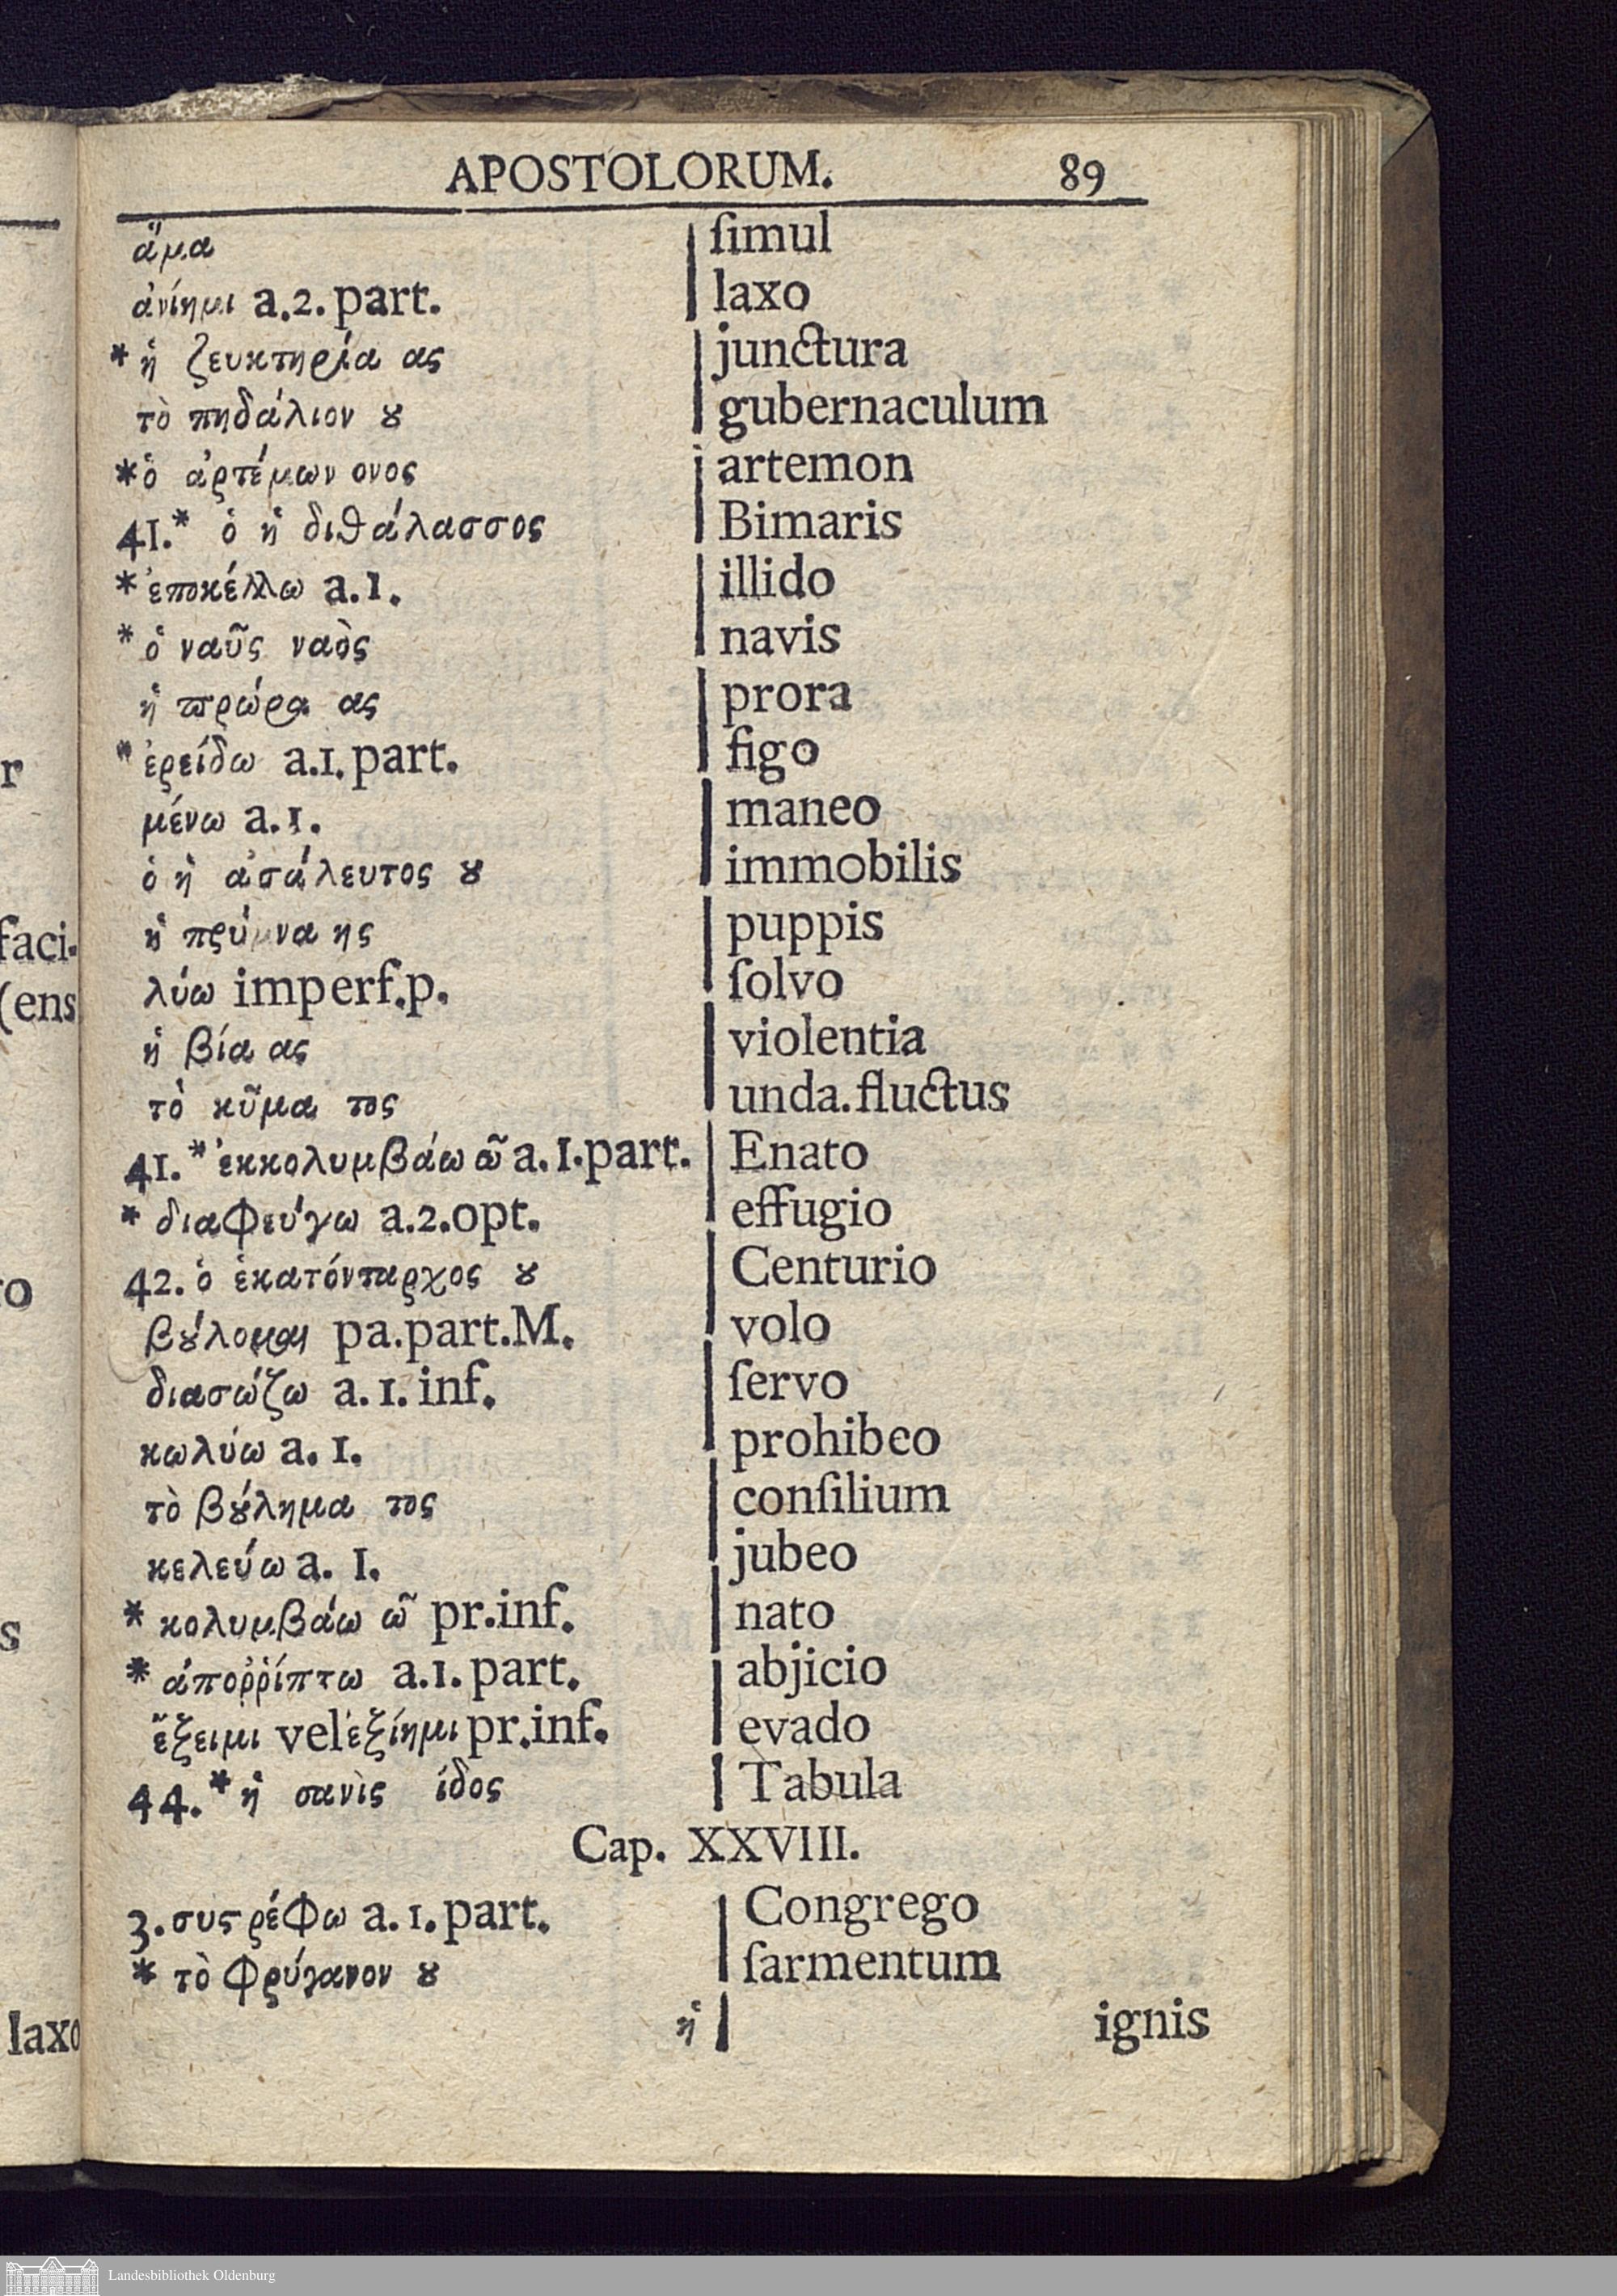 APOSTOLORUM. 89
ἅμα ſimul
ἀνίημι a.2.part. laxo
* ἡ ζευκτηρία ας junctura
τὸ πηδάλιον ȣ gubernaculum
* ὁ ἀρτέμων ονος artemon
41.* ὁ ἡ διθάλασσος Bimaris
* ἐποκέλλω a.1. illido
* ὁ ναῦς ναὸς navis
ἡ πρώρα ας prora
* ἐρείδω a.1.part. figo
μένω a.1. maneo
ὁ ἡ ἀσάλευτος ȣ immobilis
ἡ πρύμνα ης puppis
λύω imperf.p. ſolvo
ἡ βία ας violentia
τὸ κῦμα τος unda.fluctus
41.* ἐκκολυμβάω ῶ a.1.part. Enato
* διαφεύγω a.2.opt. effugio
42. ὁ ἑκατόνταρχος ȣ Centurio
βȣ́λομαι pa.part.M. volo
διασώζω a.1.inf. ſervo
κωλύω a. 1. prohibeo
τὸ βȣ́λημα τος conſilium
κελεύω a. 1. jubeo
* κολυμβάω ῶ pr.inf. nato
* ἀποῤῥίπτω a.1.part. abjicio
ἔξειμι vel ἐξίημι pr.inf. evado
44.* ἡ σανὶς ίδος Tabula
Cap. XXVIII.
3. συϛρέφω a.1.part. Congrego
* τὸ φρύγανον ȣ ſarmentum
ἡ ignis
r
faci-
(ens
o
s
laxo
Landesbibliothek Oldenburg